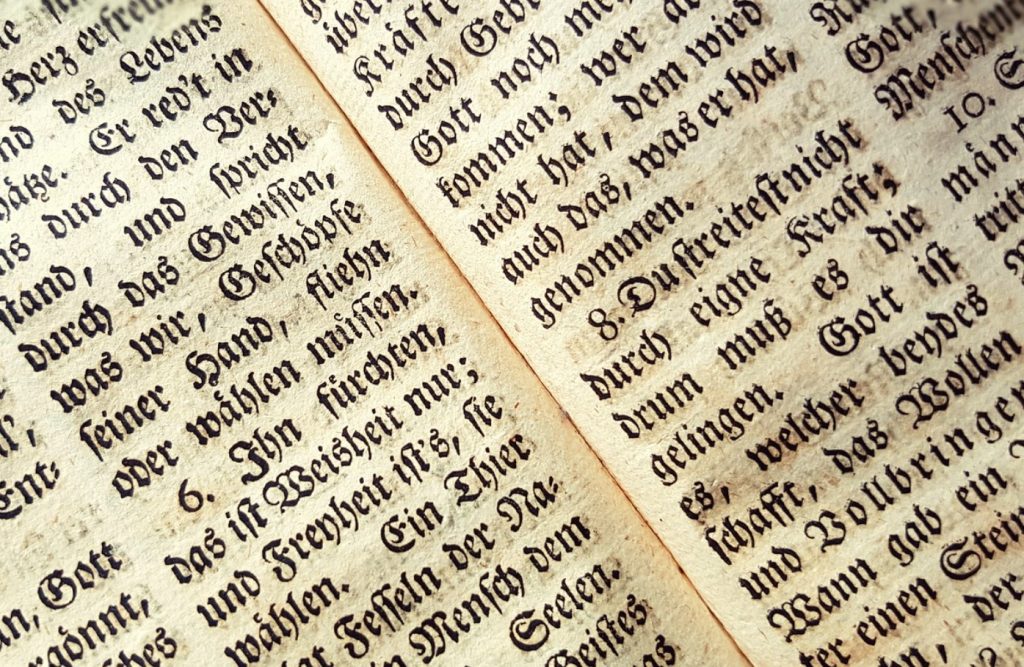 Herz erfreuen
und des Lebens
Er red't in
durch den Ver-
stand, und spricht
durch das Gewissen,
was wir, Geschöpfe
seiner Hand, fliehn
oder wählen müssen.
6. Ihn fürchten,
das ist Weisheit nur;
und Freyheit ist's, sie
wählen. Ein Thier
hat Fesseln der Na-
Mensch dem
Seelen.
Geistes
Ent-
Gott
Kräfte
durch Gebe
Gott noch me
kommen; wer
nicht hat, dem wird
auch das, was er hat,
genommen.
8. Du streitest nicht
durch eigne Kraft;
drum muß es dir
gelingen. Gott ist
es, welcher beydes
schafft, das Wollen
und Vollbringen
Wann gab ein
einen Stein
der
Gott,
Menschen
10.